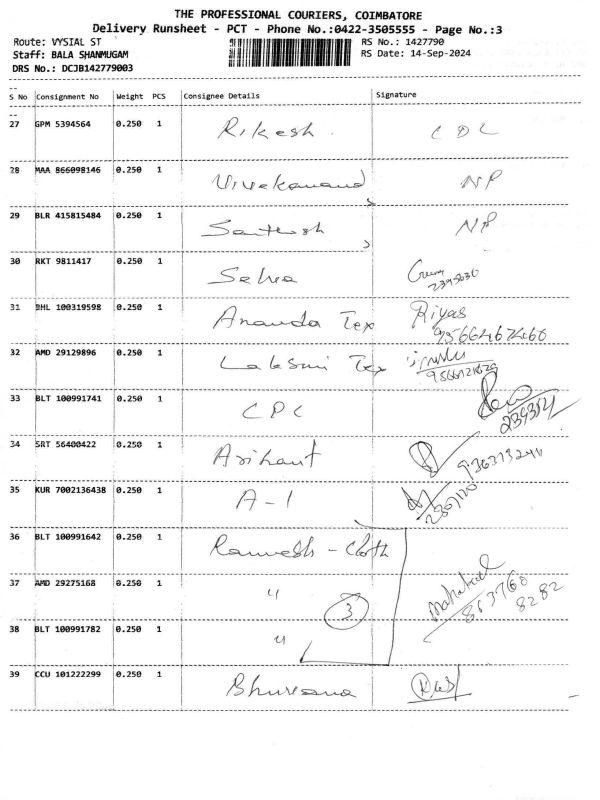 THE PROFESSIONAL COURIERS, COIMBATORE
Delivery Runsheet - PCT - Phone No.:0422-3505555 - Page No.:3
Route: VYSIAL ST RS No.: 1427790
Staff: BALA SHANMUGAM RS Date: 14-Sep-2024
DRS No.: DCJB142779003
S No Consignment No Weight PCS Consignee Details Signature
27 GPM 5394564 0.250 1 Rikesh CDC
28 MAA 866098146 0.250 1 Vivekanand NP
29 BLR 415815484 0.250 1 Santhosh NP
30 RKT 9811417 0.250 1 Selva
31 BHL 100319598 0.250 1 Ananda Tex Riyas
32 AMD 29129896 0.250 1 Laksmi Tex
33 BLT 100991741 0.250 1 CPC
34 SRT 56400422 0.250 1 Arihant
35 KUR 7002136438 0.250 1 A-1
36 BLT 100991642 0.250 1 Ramesh - Cloth
37 AMD 29275168 0.250 1 " 3
38 BLT 100991782 0.250 1 "
39 CCU 101222299 0.250 1 Bhuvana